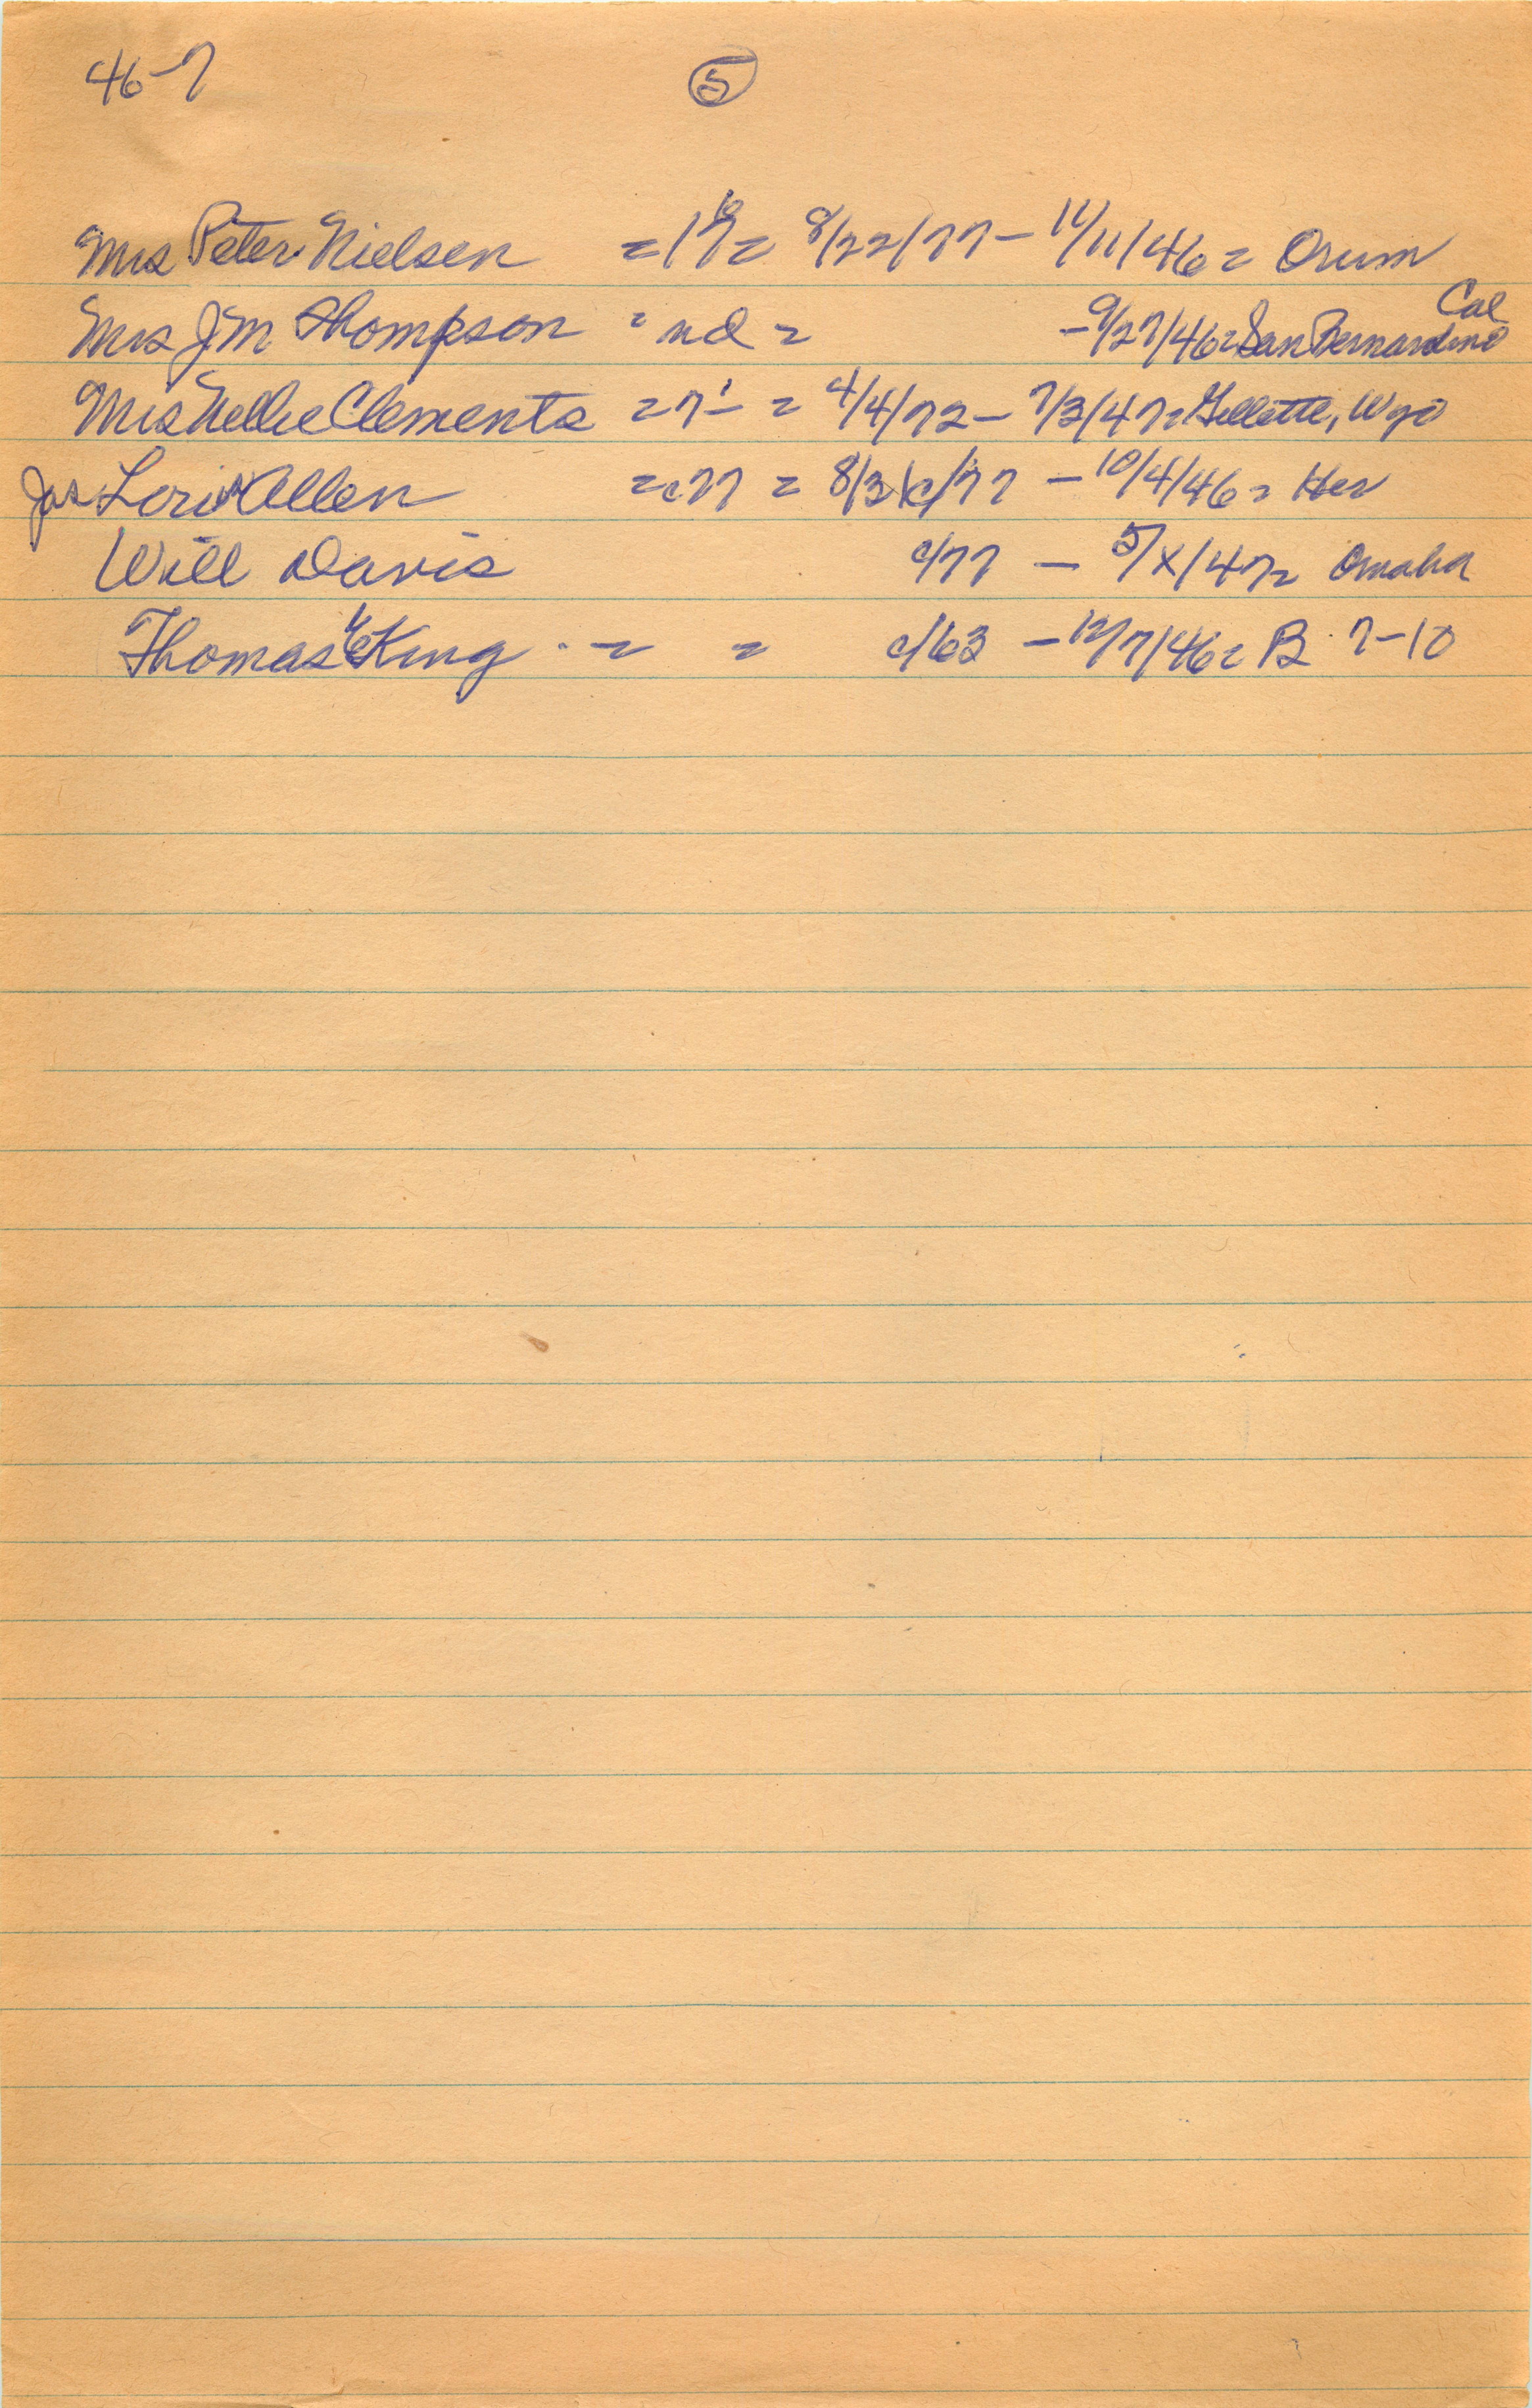 46-7 5
Mrs Peter Nielsen = 17 = 8/22/77 - 11/11/46 = Orum
Cal
Mrs J M Thompson = nd = - 9/27/46 = San Bernardino
Mrs Nellie Clements = 71 = 4/4/72 - 7/3/47 = Gillette, Wyo
Jas Allen = c77 = 8/3 /c/77 - 10/4/46 = Her
Will Davis c/77 - 5/X/47 = Omaha
Thomas King = = c/63 - 12/7/46 = B 7-10